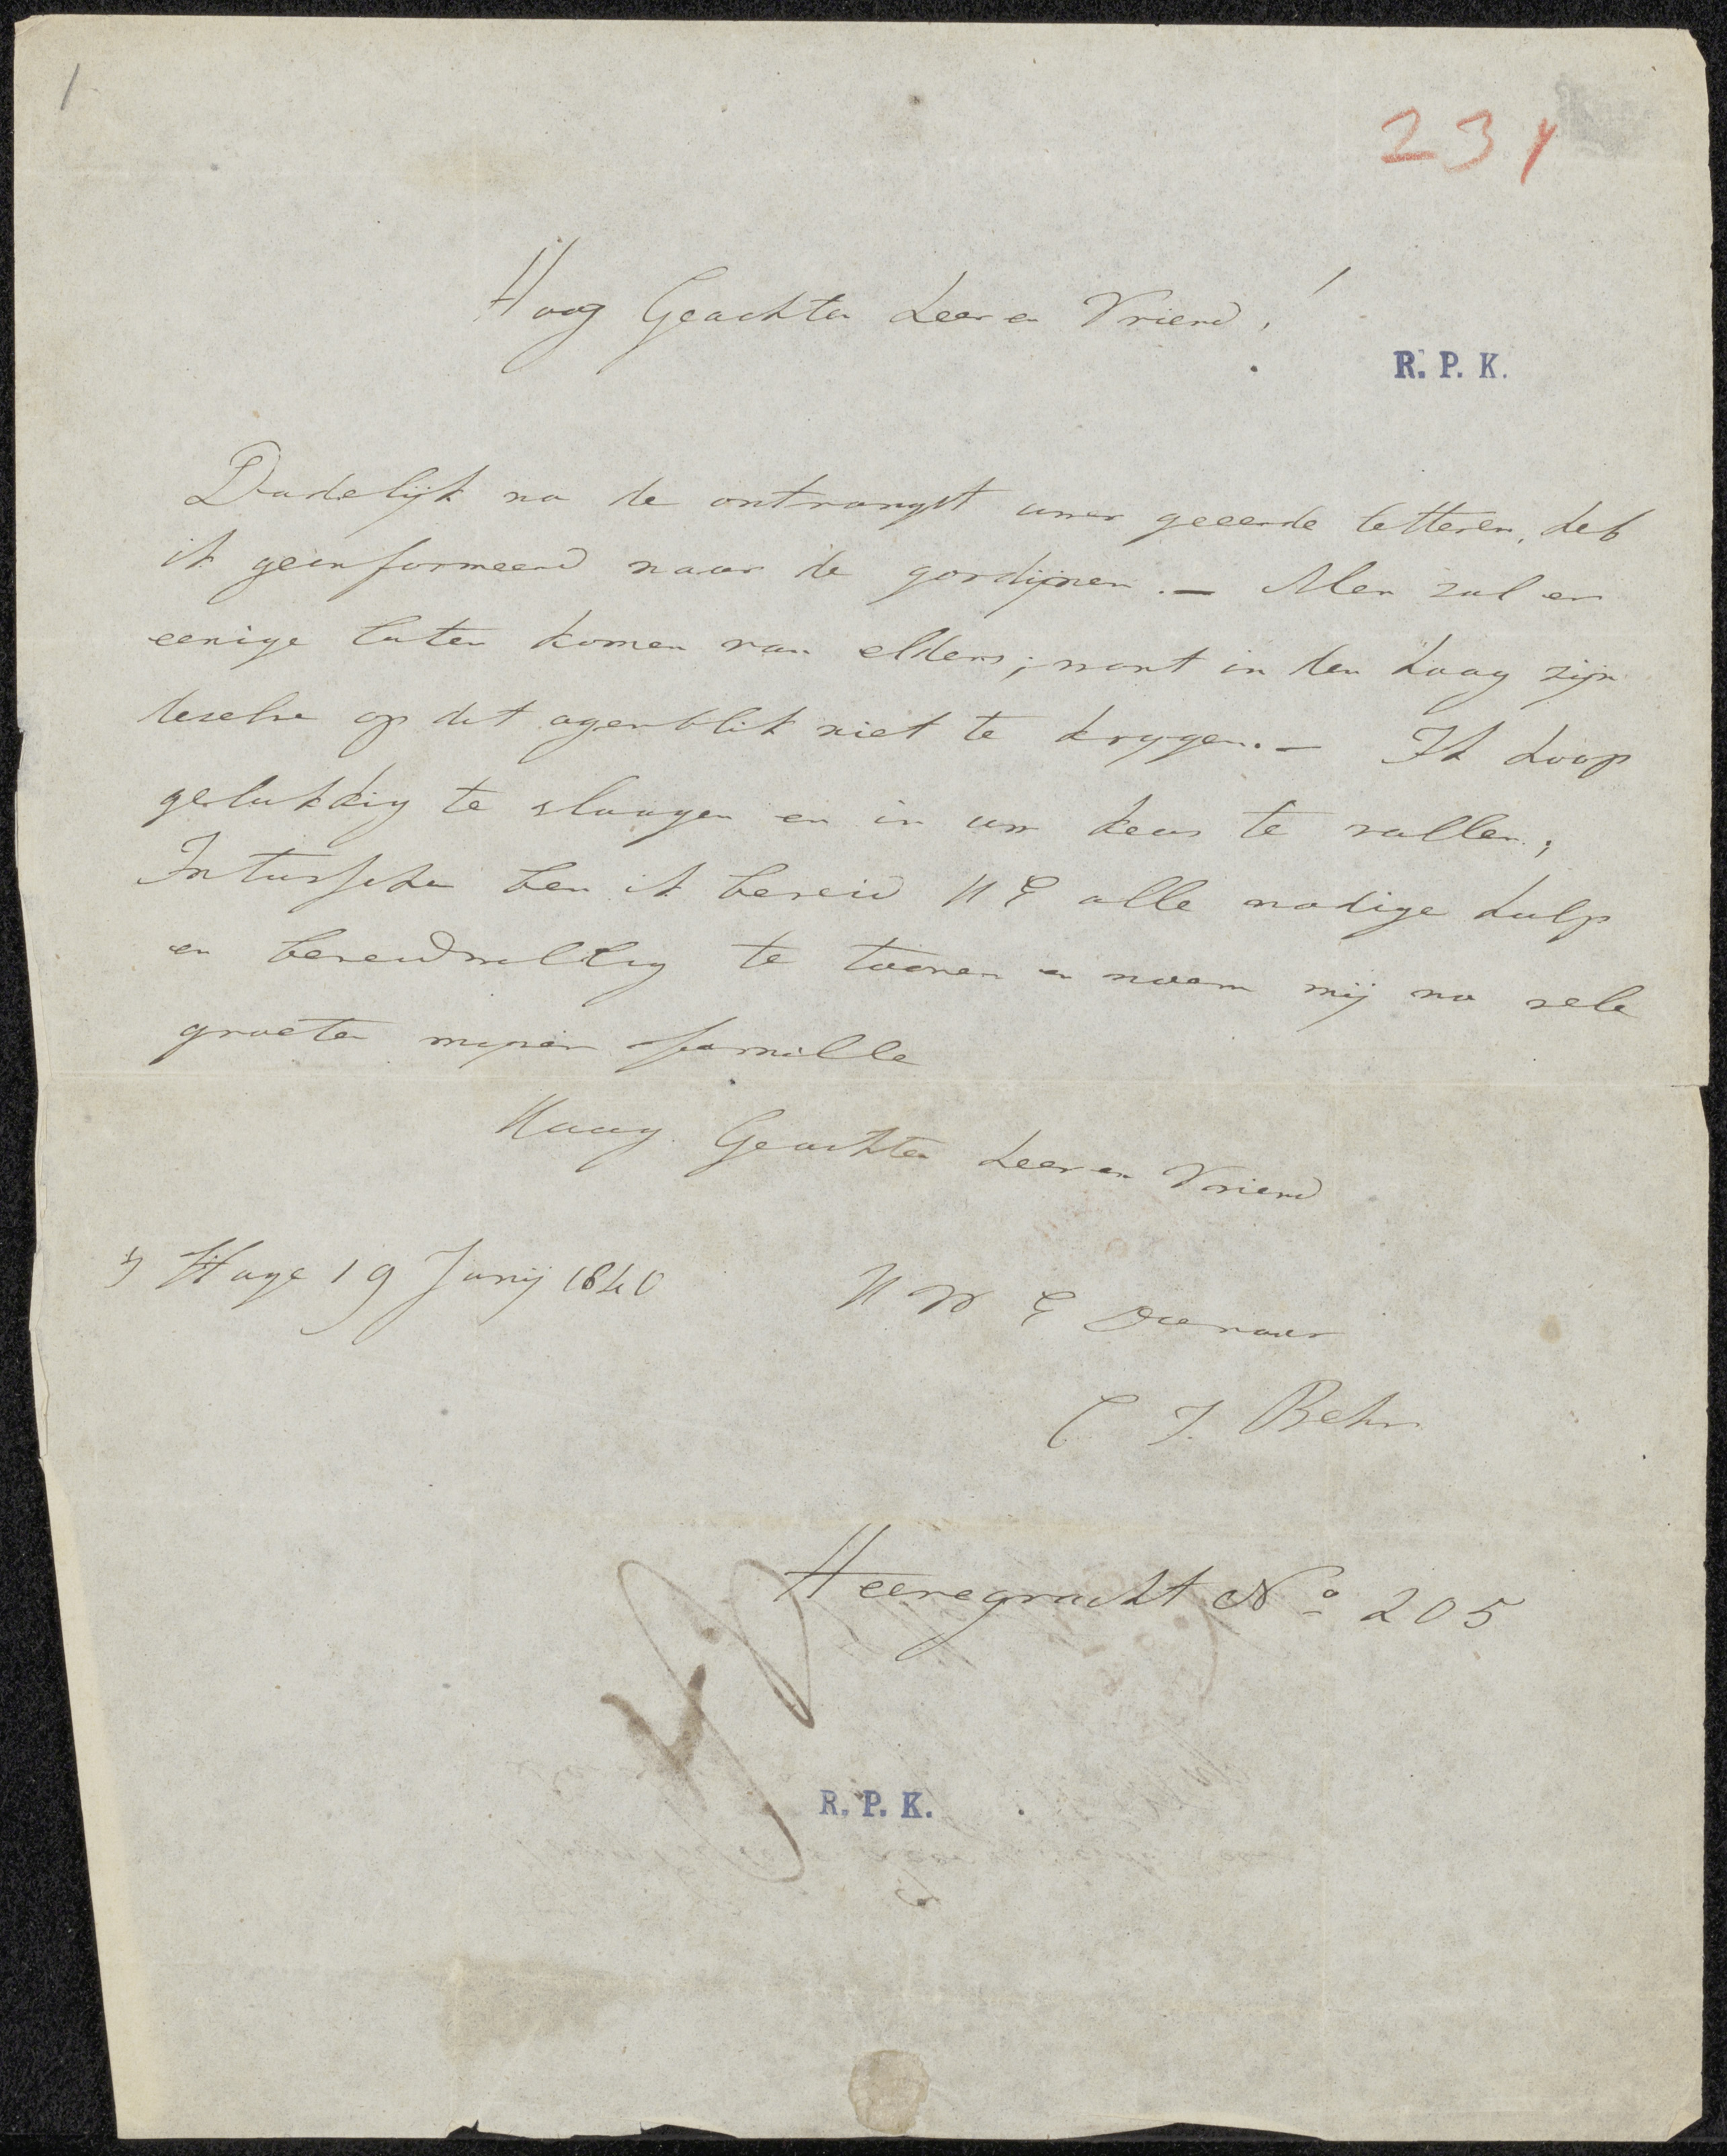 1
231
Hoog Geachten Heer en Vriend!
R. P. K.
Dadelijk na de ontvangst uwer geeerde letteren, heb
ik geinformeerd naar de gordijnen. — Men zal er
eenige laten komen van elders; want in den Haag zijn
deselve op dit ogenblik niet te krygen. — Ik hoop
gelukkig te slaagen en in uw keus te vallen;
Intusschen ben ik bereid UE alle nodige hulp
en bereidwillig te toonen en noem mij na vele
groeten mijner famille
Hoog Geachten Heer en Vriend
's Hage 19 Junij 1840
UWE Dienaar
C J. Behr
Heeregracht No 205
R. P. K.